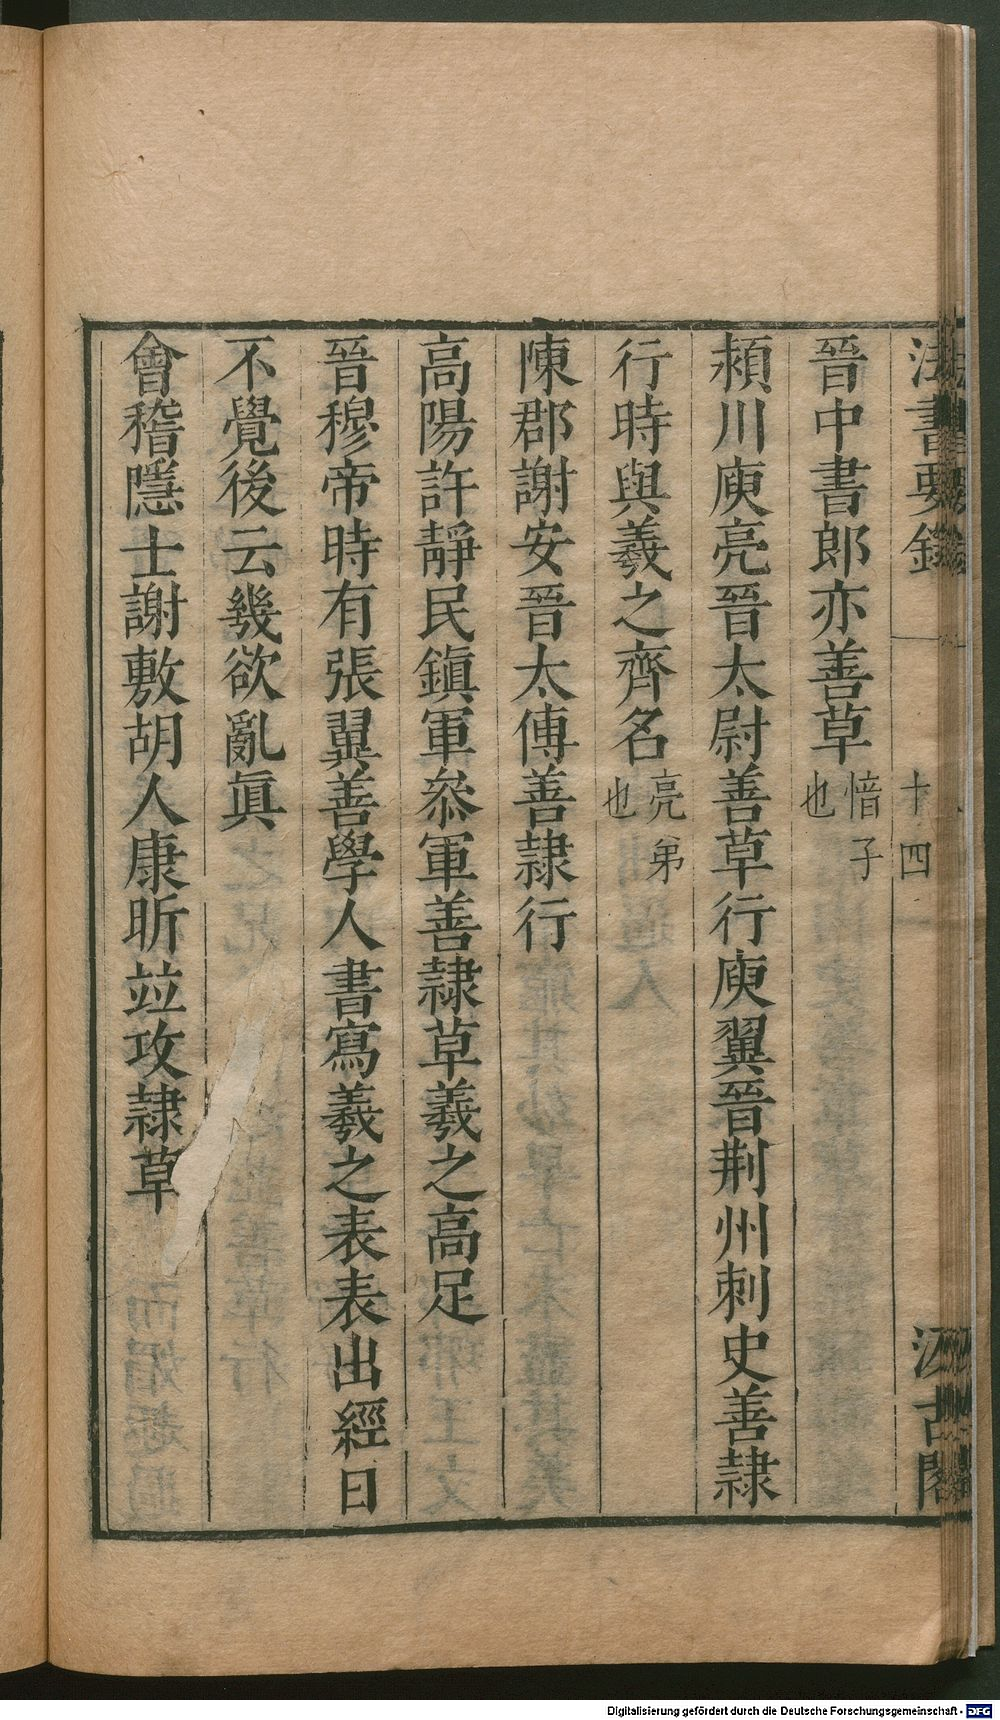 法書要錄
十四
汲古閣
晉中書郎亦善草愔子也
頴川庾亮晉太尉善草行庾翼晉荆州刺史善隸
行時與羲之齊名亮弟也
陳郡謝安晉太傅善隸行
高陽許靜民鎮軍叅軍善隸草羲之高足
晉穆帝時有張翼善學人書寫羲之表表出經日
不覺後云幾欲亂眞
會稽隱士謝敷胡人康昕竝攻隸草
Digitalisierung gefördert durch die Deutsche Forschungsgemeinschaft - DFG